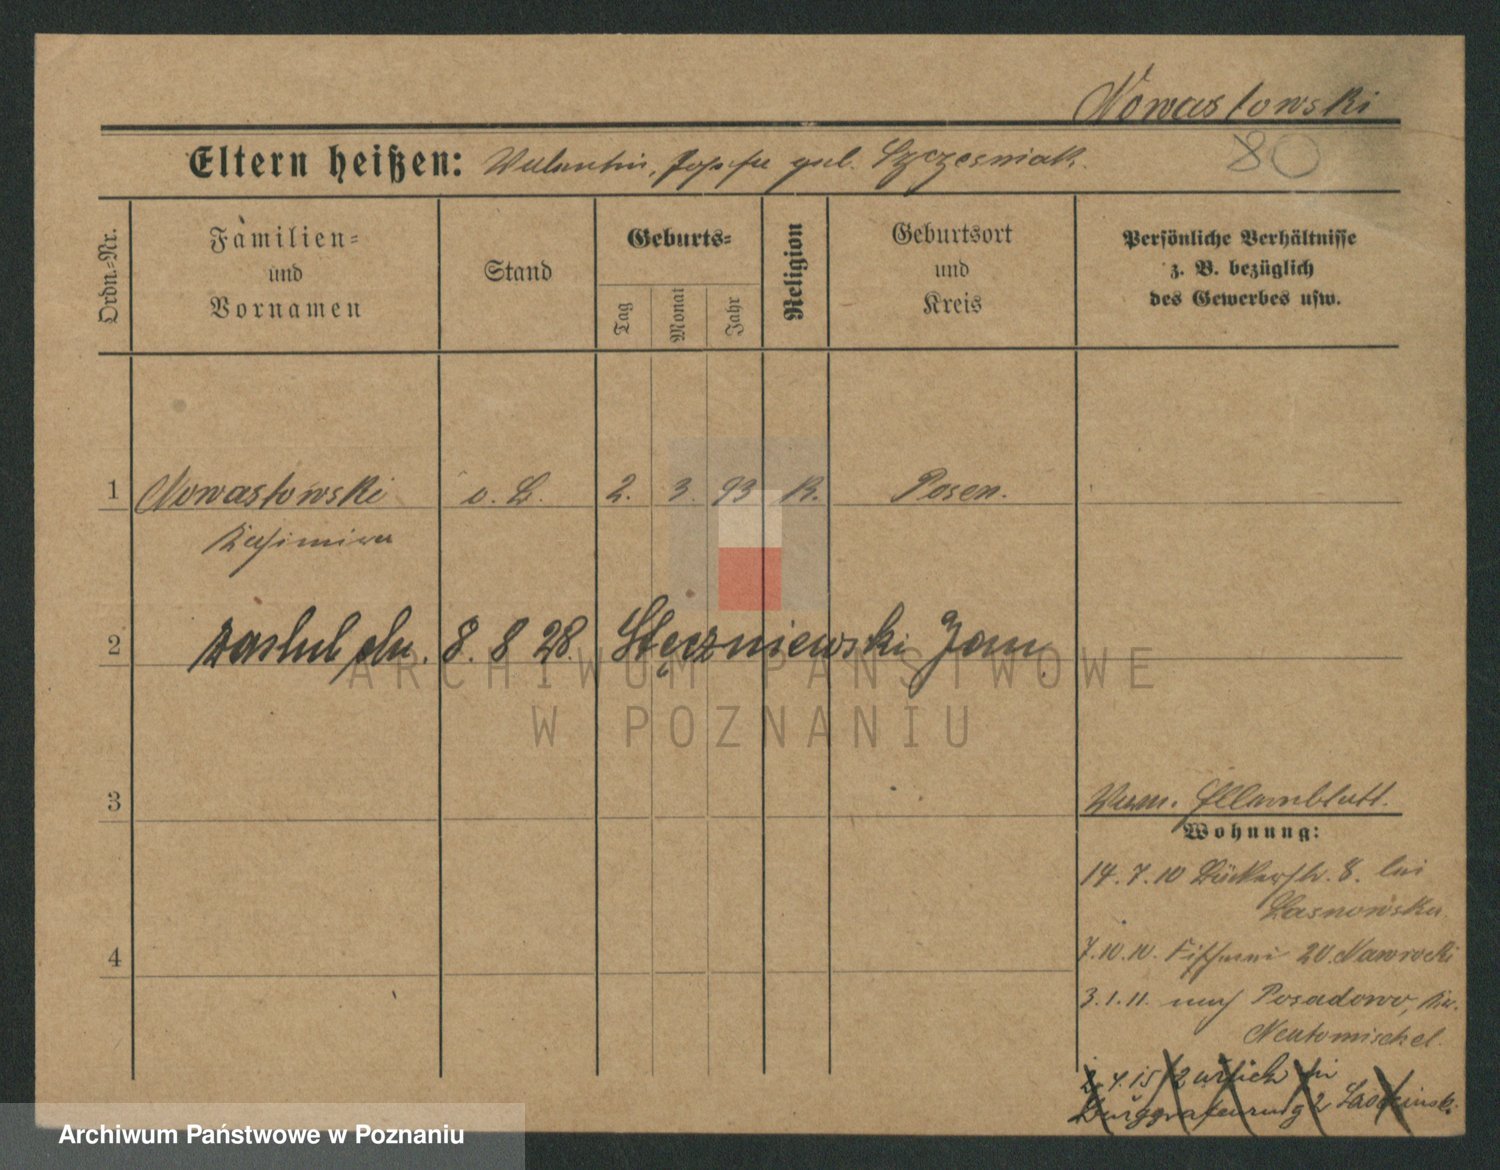 Nowastowski
80
Eltern heißen: Valentin, Josefa geb. Szczesniak.
Ordn.-Nr.
Familien-
und
Vornamen
Stand
Geburts-
Tag
Monat
Jahr
Religion
Geburtsort
und
Kreis
Persönliche Verhältnisse
z. B. bezüglich
des Gewerbes usw.
1 Nowastowski o. B. 2. 3. 93 K. Posen.
Kasimira
2 zaślub dn. 8. 8 28. Stęczniewski Jan
3
Wohnung:
14. 7. 10 Bäckerstr. 8. bei
7.10.10. Fischerei 20 Nawrocki
4
3.1.11. nach Posadowo, Kr.
Neutomischel.
4. 15 zurück in
Burggrafenring 2
ARCHIWUM PAŃSTWOWE
W POZNANIU
Archiwum Państwowe w Poznaniu